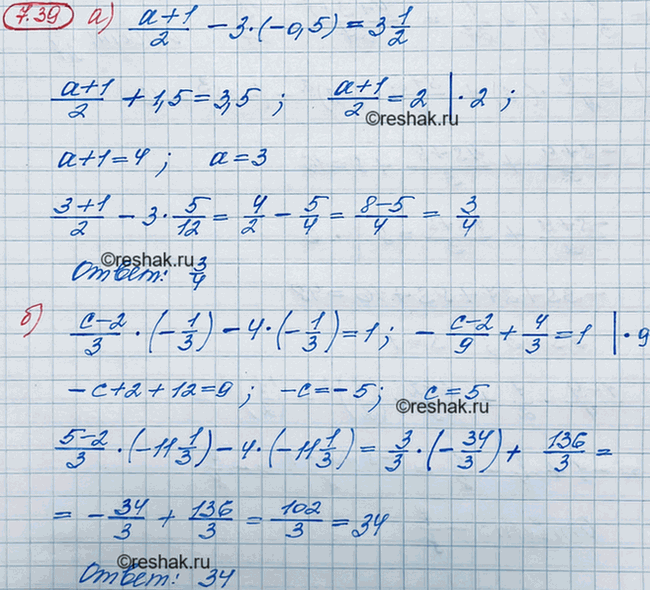 7.39 а) (a+1)/2 − 3·(−0,5) = 3 1/2
(a+1)/2 + 1,5 = 3,5 ; (a+1)/2 = 2 | · 2 ;
©reshak.ru
a+1=4 ; a=3
(3+1)/2 − 3 · 5/12 = 4/2 − 5/4 = (8−5)/4 = 3/4
©reshak.ru
Ответ: 3/4
б) (c−2)/3 · (−1/3) − 4 · (−1/3) = 1 ; −(c−2)/9 + 4/3 = 1 | · 9
−c+2+12=9 ; −c=−5 ; c=5
©reshak.ru
(5−2)/3 · (−11 1/3) − 4 · (−11 1/3) = 3/3 · (−34/3) + 136/3 =
= −34/3 + 136/3 = 102/3 = 34
©reshak.ru
Ответ: 34